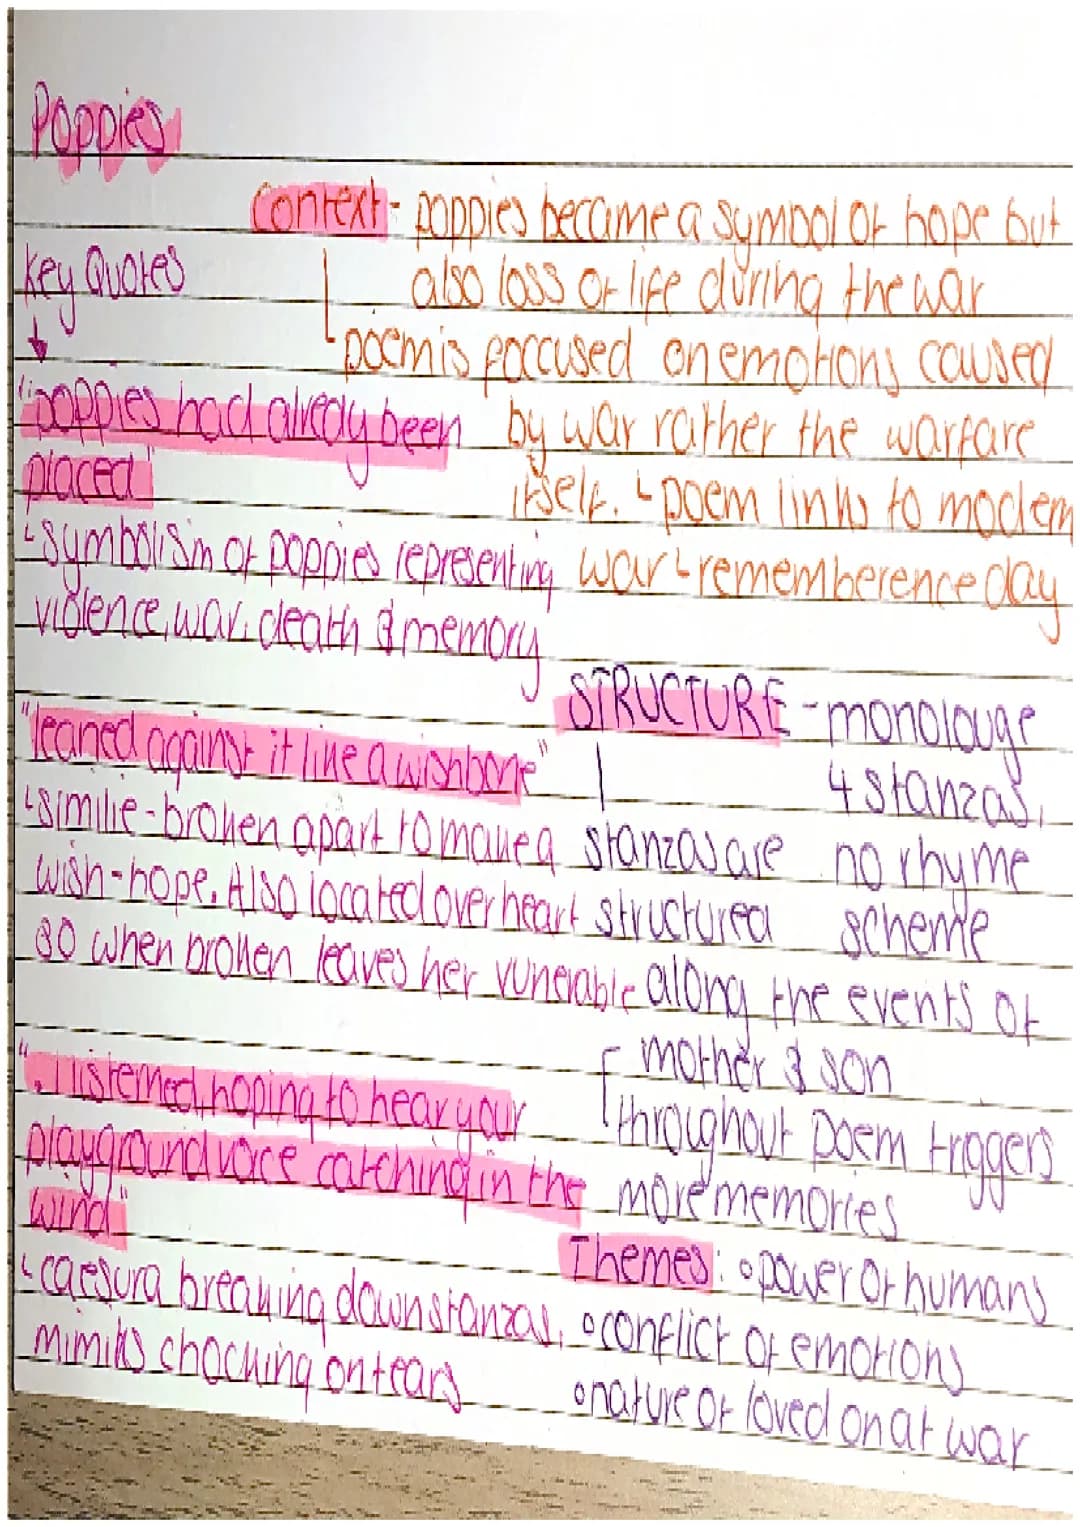 Poppies
Context - poppies became a symbol of hope but
also loss of life during the war
poem is foccused on emotions caused
by war rather the warfare
itself. ↳ poem links to modern
war ↳ rememberence day
Key Quotes
↓
"poppies had alredy been
placed"
↳ symbolism of poppies representing
violence, war, death & memory
"leaned against it like a wishbone"
↳ similie - broken apart to make a
wish - hope. Also located over heart
so when broken leaves her vunerable
". I listened, hoping to hear your
playground voice catching in the
wind"
↳ caesura breaking down stanzas,
mimiks chocking on tears
STRUCTURE - monolouge
4 stanzas,
no rhyme
scheme
stanzas are
structured
along the events of
mother & son
throughout poem triggers
more memories
Themes: o power of humans
o conflict of emotions
o nature of loved on at war